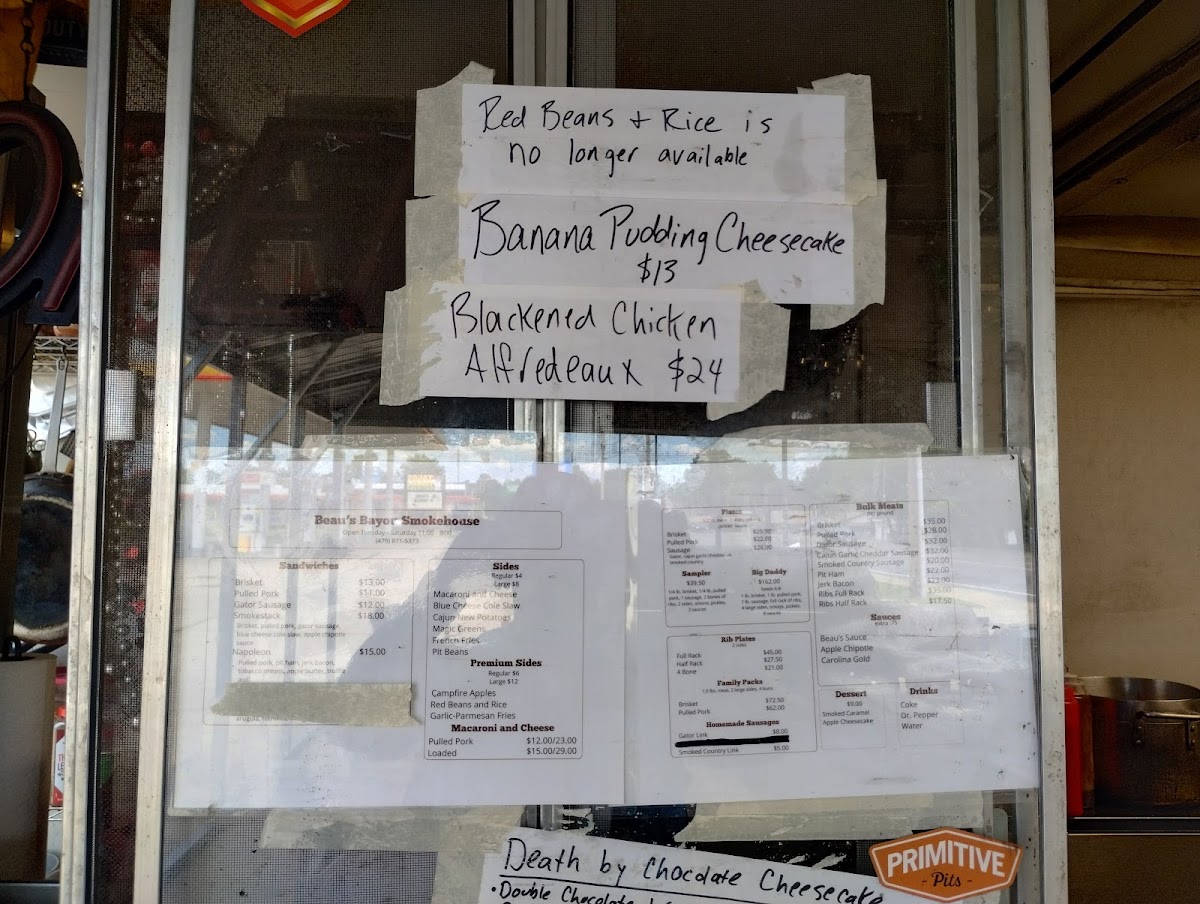 Red Beans + Rice is
no longer available
Banana Pudding Cheesecake
$13
Blackened Chicken
Alfredeaux $24
Beau's Bayou Smokehouse
Open Tuesday - Saturday 11:00 - 8:00
(479) 871-5373
Sandwiches
Brisket $13.00
Pulled Pork $11.00
Gator Sausage $12.00
Smokestack $18.00
Brisket, pulled pork, gator sausage,
blue cheese cole slaw, apple chipotle
sauce
Napoleon $15.00
Pulled pork, pit ham, jerk bacon,
tobacco onions, apple butter, truffle
Sides
Regular $4
Large $8
Macaroni and Cheese
Blue Cheese Cole Slaw
Cajun New Potatoes
Magic Greens
French Fries
Pit Beans
Premium Sides
Regular $6
Large $12
Campfire Apples
Red Beans and Rice
Garlic-Parmesan Fries
Macaroni and Cheese
Pulled Pork $12.00/23.00
Loaded $15.00/29.00
Plates
Brisket $25.50
Pulled Pork $22.00
Sausage $26.00
Gator, cajun garlic cheddar, or
smoked country
Sampler
$39.50
1/4 lb. brisket, 1/4 lb. pulled
pork, 1 sausage, 2 bones of
ribs, 2 sides, onions, pickles,
2 sauces
Big Daddy
$162.00
1 lb. brisket, 1 lb. pulled pork,
1 lb. sausage, full rack of ribs,
4 large sides, onions, pickles,
Rib Plates
2 sides
Full Rack $45.00
Half Rack $27.50
4 Bone $21.00
Family Packs
1.5 lbs. meat, 2 large sides, 4 buns
Brisket $72.50
Pulled Pork $62.00
Homemade Sausages
Gator Link $8.00
Smoked Country Link $5.00
Bulk Meats
per pound
Brisket $35.00
Pulled Pork $28.00
Gator Sausage $32.00
Cajun Garlic Cheddar Sausage $32.00
Smoked Country Sausage $20.00
Pit Ham $22.00
Jerk Bacon $23.00
Ribs Full Rack $35.00
Ribs Half Rack $17.50
Sauces
extra .75
Beau's Sauce
Apple Chipotle
Carolina Gold
Dessert
$9.00
Smoked Caramel
Apple Cheesecake
Drinks
Coke
Dr. Pepper
Water
Death by Chocolate Cheesecake
• Double Chocolate
PRIMITIVE
- Pits -